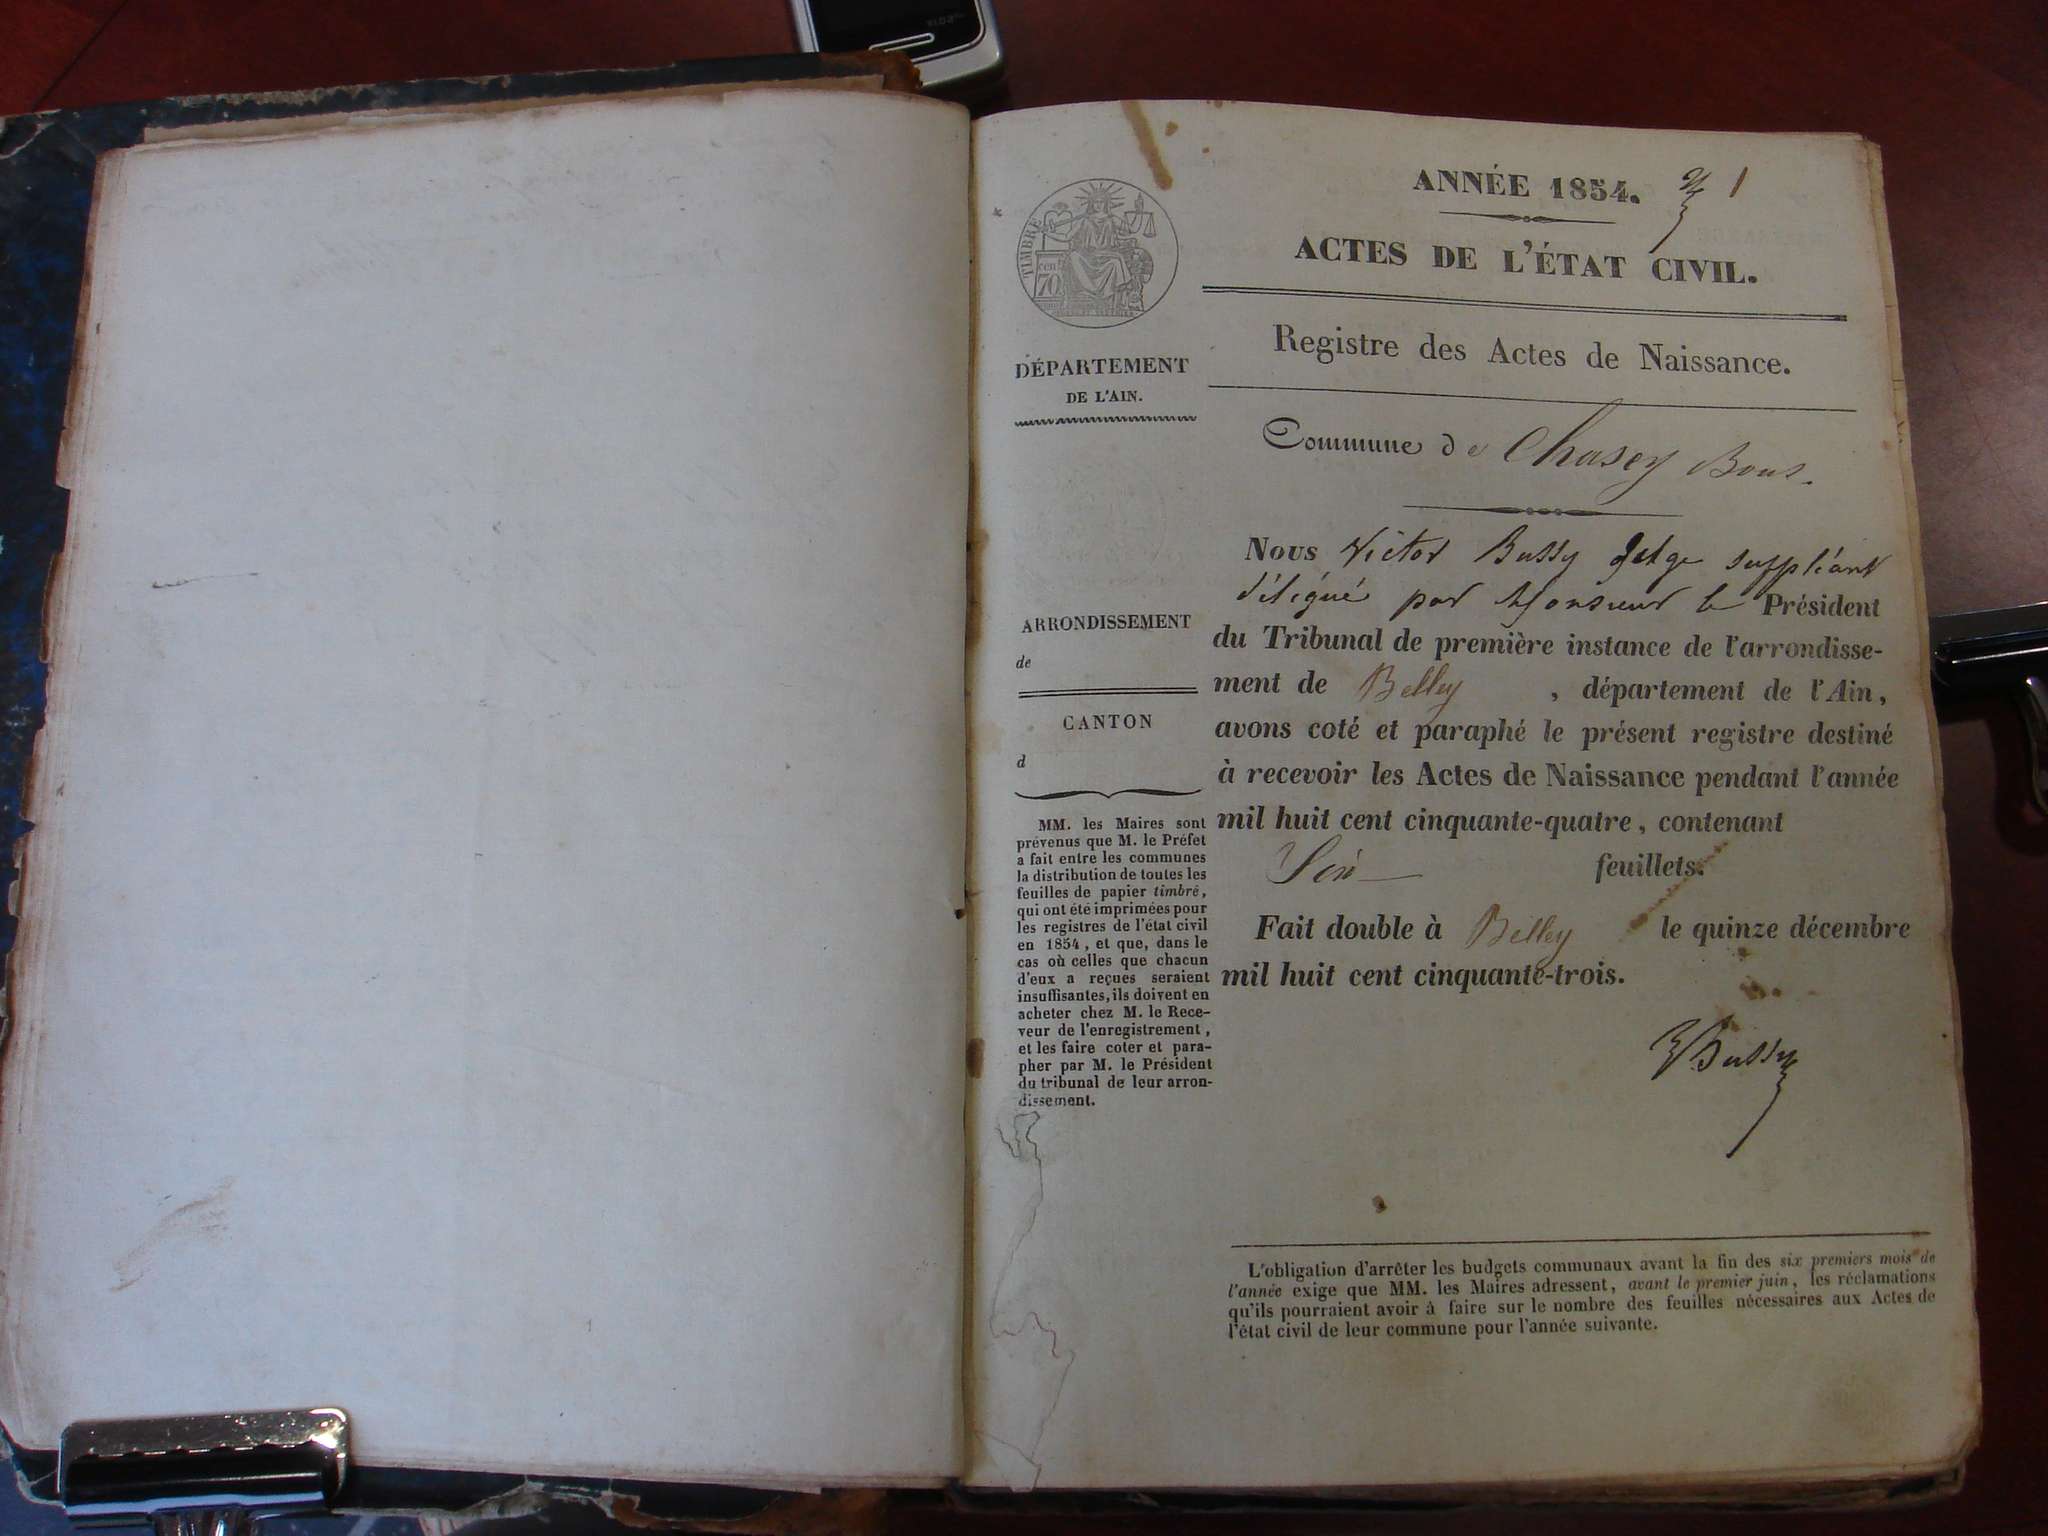 ANNÉE 1854.
1
ACTES DE L'ÉTAT CIVIL.
Registre des Actes de Naissance.
Commune de Chasey Bons.
TIMBRE
cent.
70
DÉPARTEMENT
DE L'AIN.
ARRONDISSEMENT
de
CANTON
d
MM. les Maires sont
prévenus que M. le Préfet
a fait entre les communes
la distribution de toutes les
feuilles de papier timbré,
qui ont été imprimées pour
les registres de l'état civil
en 1854, et que, dans le
cas où celles que chacun
d'eux a reçues seraient
insuffisantes, ils doivent en
acheter chez M. le Rece-
veur de l'enregistrement,
et les faire coter et para-
pher par M. le Président
du tribunal de leur arron-
dissement.
Nous Victor Bussy Juge suppléant
délégué par Monsieur le Président
du Tribunal de première instance de l'arrondisse-
ment de Belley , département de l'Ain,
avons coté et paraphé le présent registre destiné
à recevoir les Actes de Naissance pendant l'année
mil huit cent cinquante-quatre, contenant
Six feuillets.
Fait double à Belley le quinze décembre
mil huit cent cinquante-trois.
VBussy
L'obligation d'arrêter les budgets communaux avant la fin des six premiers mois de
l'année exige que MM. les Maires adressent, avant le premier juin, les réclamations
qu'ils pourraient avoir à faire sur le nombre des feuilles nécessaires aux Actes de
l'état civil de leur commune pour l'année suivante.